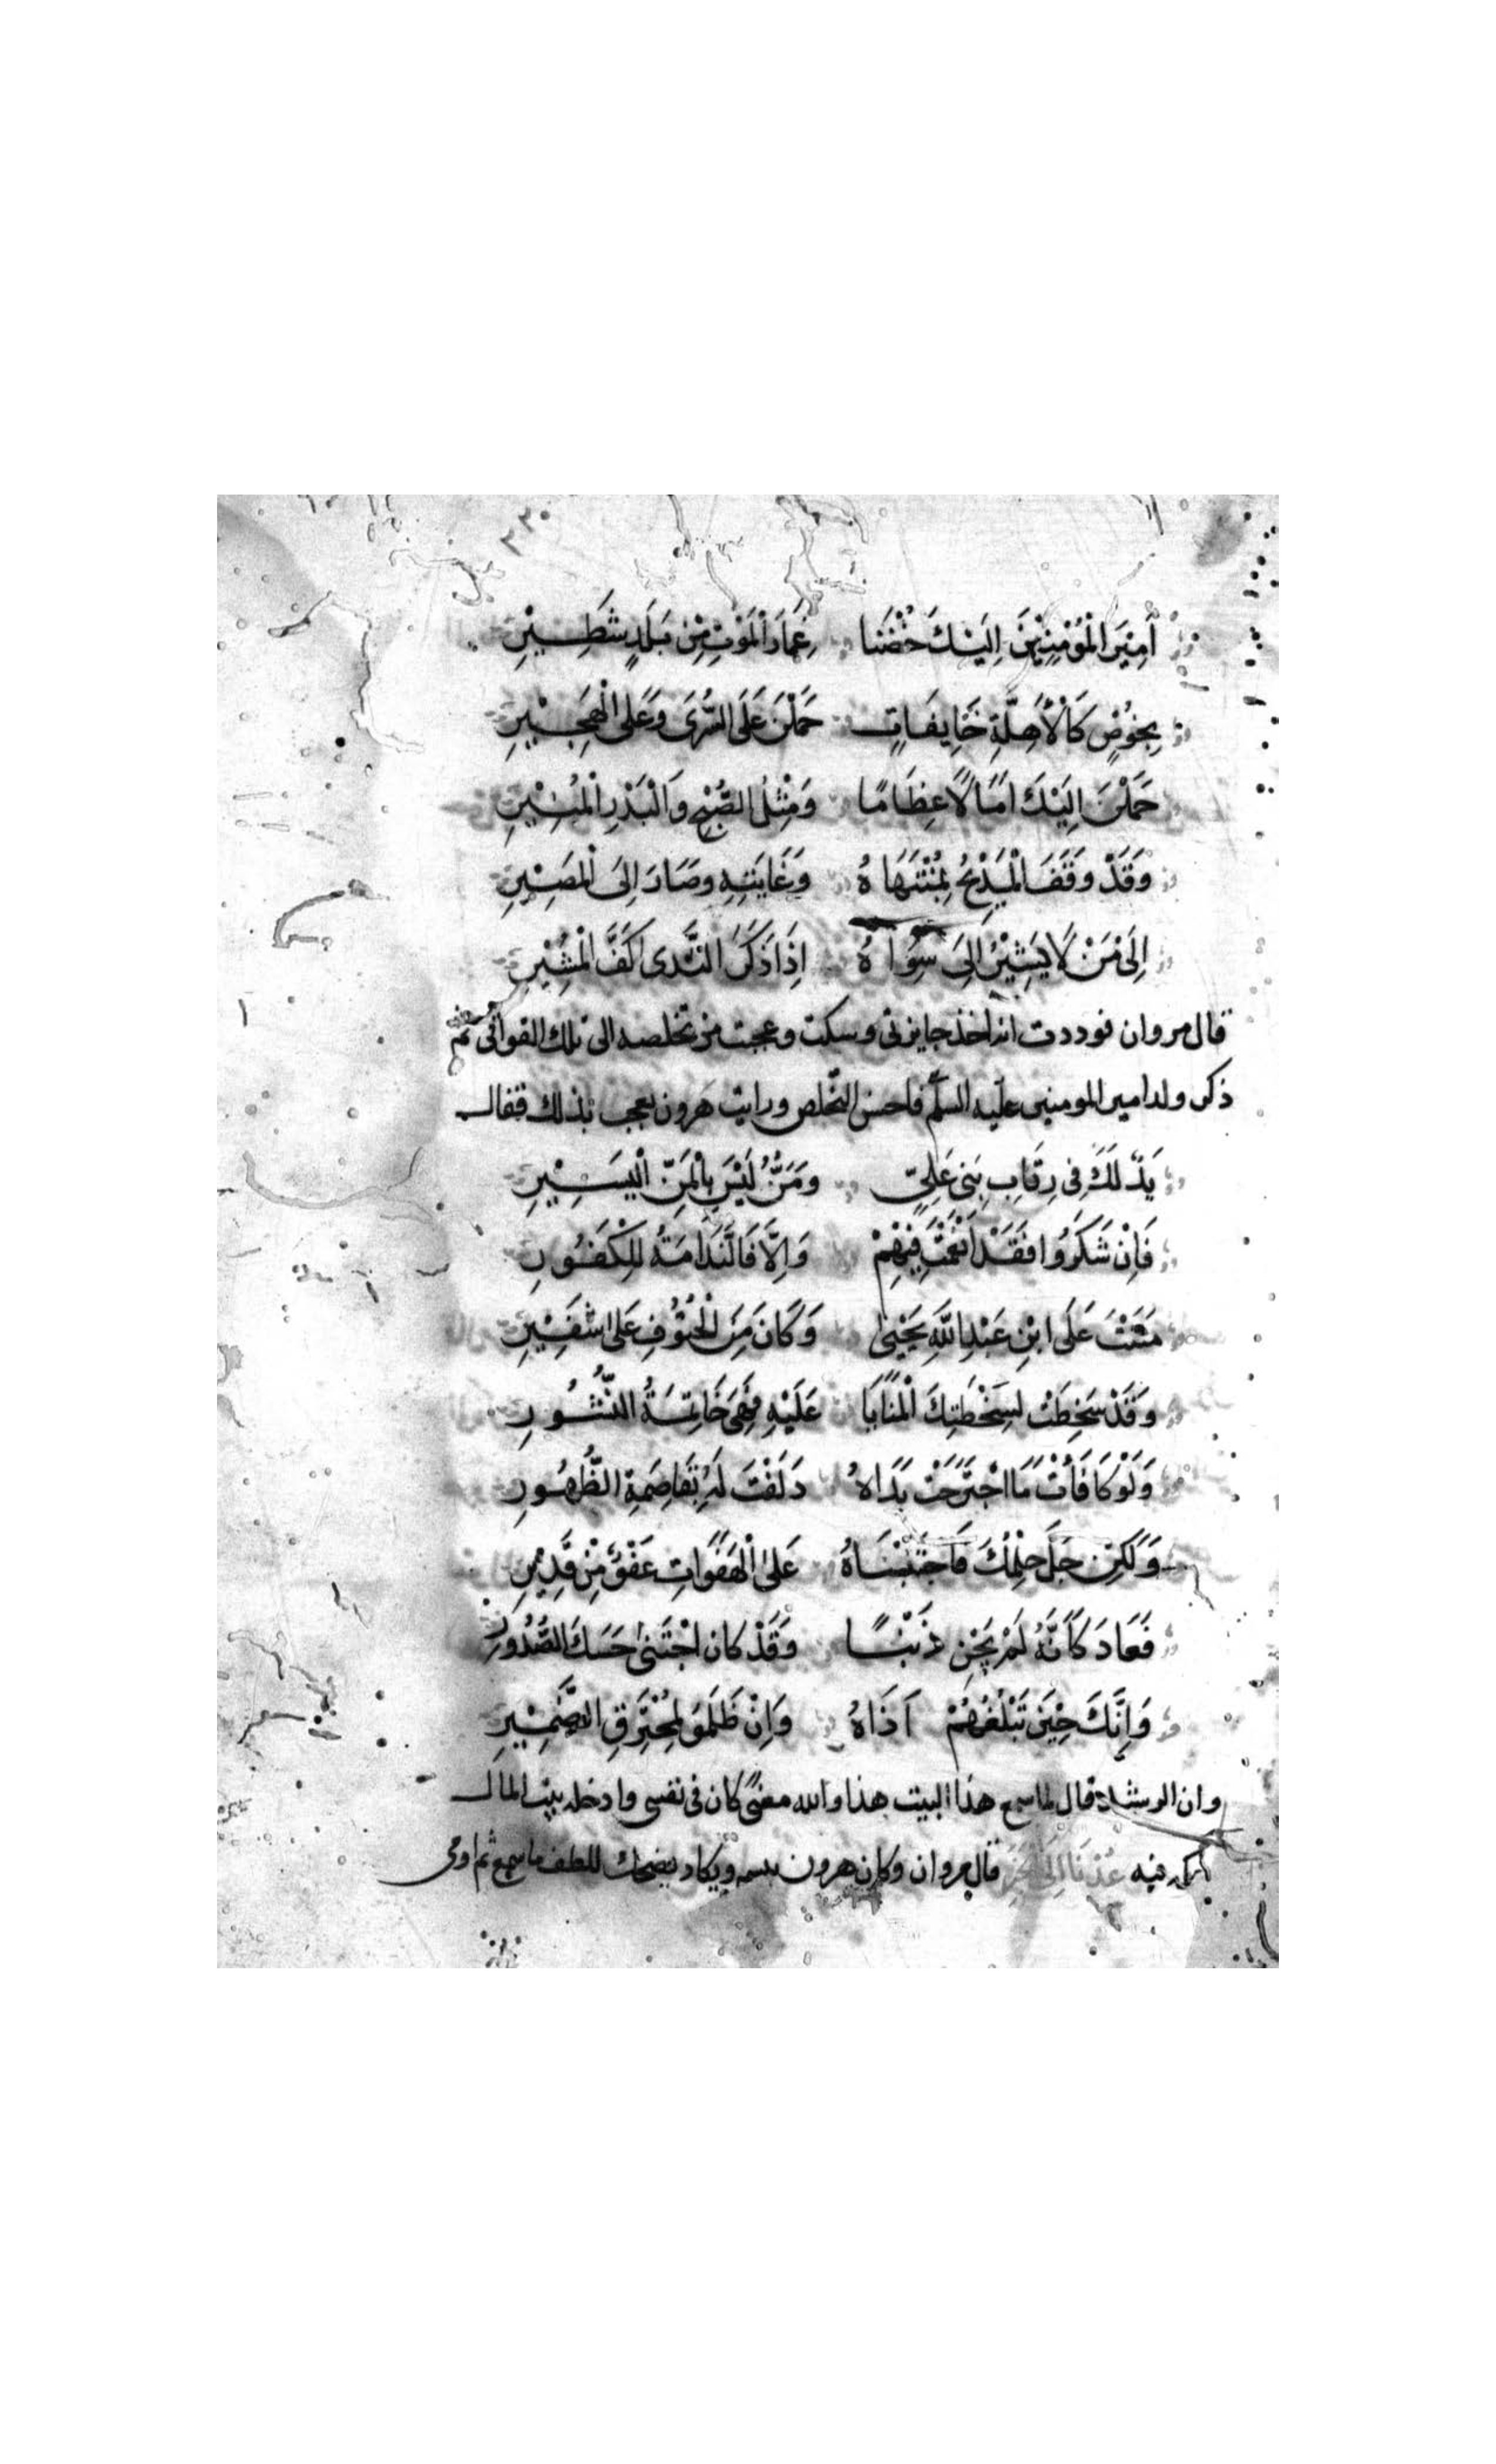 ٣٣٠
أَمِيْنَ الْمُؤْمِنِيْنَ اِلَيْكَ خُضْنَا غِمَارَ الْمَوْتِ مِنْ بَلَدٍ شَطِيْرِ
بِخُوْصٍ كَالْأَهِلَّةِ خَايِفَاتٍ حَمَلْنَ عَلَى السُّرَى وَعَلَى الْهَجِيْرِ
حَمَلْنَ اِلَيْكَ امَالًا عِظَامًا وَمِثْلُ الصُّبْحِ وَالْبَدْرِ الْمُنِيْرِ
وَقَدْ وَقَفَ الْمَدِيْحُ بِمُنْتَهَاهُ وَغَايَتِهِ وَصَارَ اِلَى الْمَصِيْرِ
اِلَى مَنْ لَا يُشِيْرُ اِلَى سِوَاهُ اِذَا ذَكَرَ النَّدى كَفُّ الْمُشِيْرِ
قال مروان فوددت انه اخذ جايزتى وسكت وعجبت من تخلصه الى تلك القوافى ثم
ذكر ولد امير المومنين عليه السلم فاحسن التخلص ورايت هرون يعجب بذلك فقال
يَدٌ لَكَ فِى رِقَابِ بَنِى عَلِيٍّ وَمَنٌّ لَيْسَ بِالْمَنِّ الْيَسِيْرِ
فَاِنْ شَكَرُوا فَقَدْ اَنْعَمْتَ فِيْهِمْ وَاِلَّا فَالنَّدَامَةُ لِلْكَفُوْرِ
مَنَنْتَ عَلَى ابْنِ عَبْدِ اللَّهِ يَحْيىٰ وَكَانَ مِنَ الْحُتُوْفِ عَلى شَفِيْرِ
وَقَدْ سَخِطَتْ لِسَخْطَتِكَ الْمَنَايَا عَلَيْهِ فَهِىَ خَاتِمَةُ النُّشُوْرِ
وَلَوْ كَافَأْتَ مَا اجْتَرَحَتْ يَدَاهُ دَلَفْتَ لَهُ بِقَاصِمَةِ الظُّهُوْرِ
وَلَكِنْ جَلَّ حِلْمُكَ فَاجْتَبَنَاهُ عَلى الْهَفَوَاتِ عَفْوٌ مِنْ قَدِيْرِ
فَعَادَ كَأَنَّهُ لَمْ يَجْنِ ذَنْبًا وَقَدْ كان اجْتَنىٰ حَسَكَ الصُّدُوْرِ
وَاِنَّكَ حِيْنَ تَبْلُغُهُمْ اَذَاهُ وَاِنْ ظَلَمُوْ لِمُحْتَرِقِ الضَّمِيْرِ
وان الرشيد قال لما سمع هذا البيت هذا والله معنىً كان فى نفسى وادخله بيت المال
فيه عُدْنَا اِلَى قال مروان وكان هرون يبسم ويكاد يضحك للطف ما سمع ثم اومى